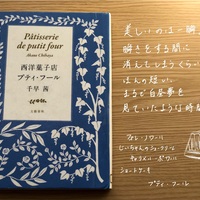 Pâtisserie
de putit four
Akane Chihaya
西洋菓子店
プティ・フール
千早 茜
文藝春秋
美しいのは一瞬
瞬きをする間に
消えてしまうくらい
ほんの短い、
まるで白昼夢を
見ていたような時間
フォレ・ノワール
じいちゃんのシュークリーム
ショートケーキ
プティ・フール